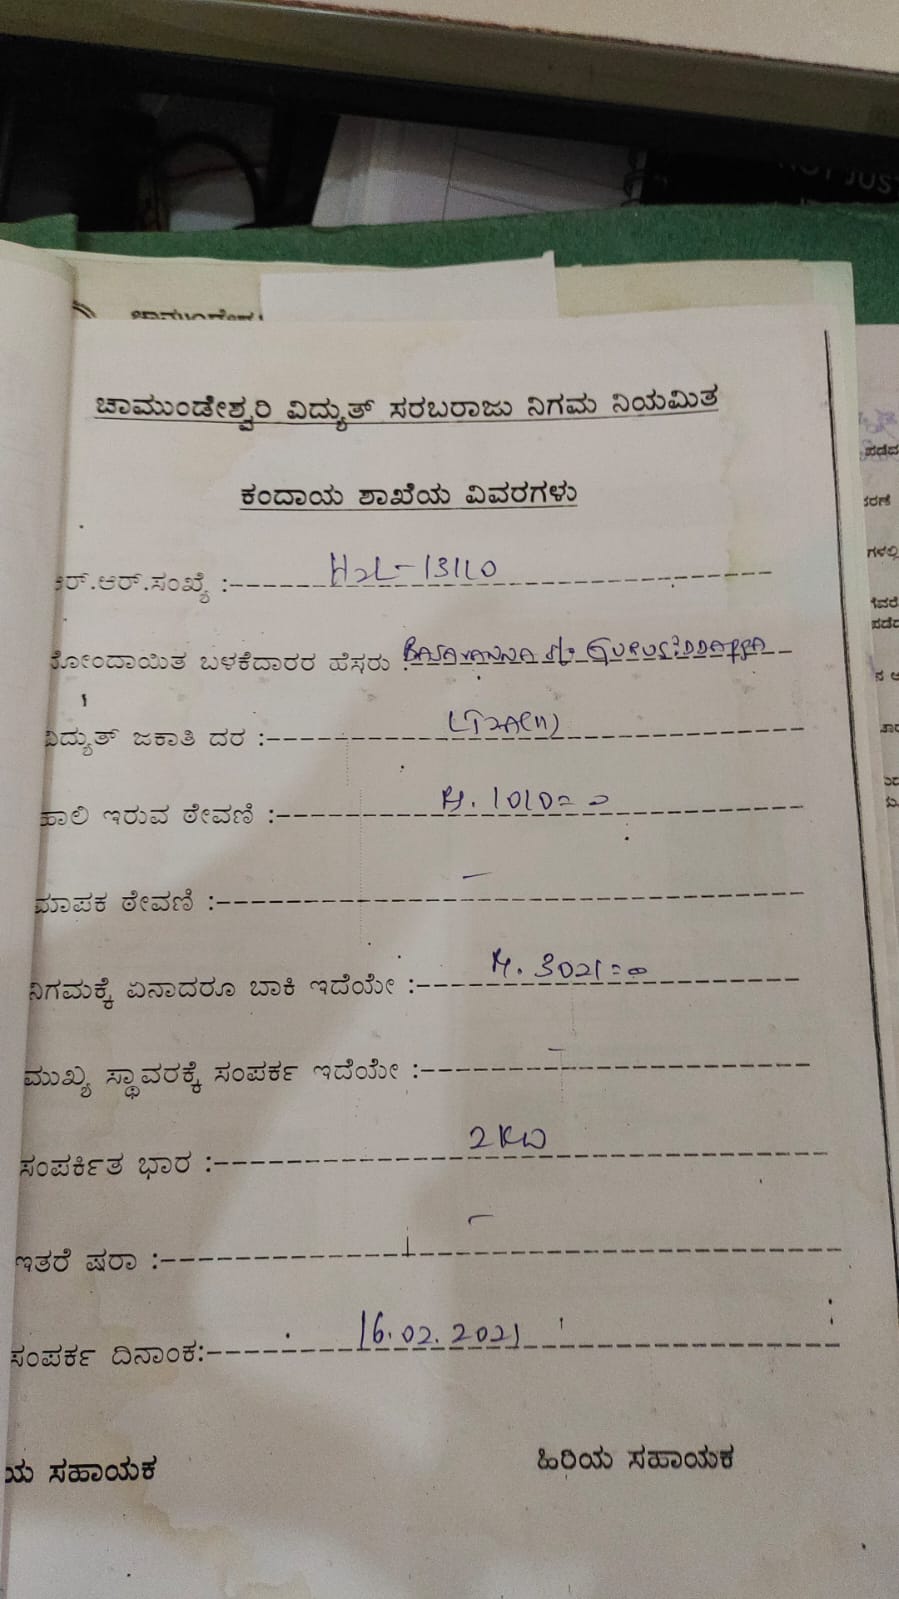 NOT JUS
ಚಾಮುಂಡೇಶ್ವರಿ ವಿದ್ಯುತ್ ಸರಬರಾಜು ನಿಗಮ ನಿಯಮಿತ
ಕಂದಾಯ ಶಾಖೆಯ ವಿವರಗಳು
ಆರ್.ಆರ್.ಸಂಖ್ಯೆ :- H2L-13110
ನೋಂದಾಯಿತ ಬಳಕೆದಾರರ ಹೆಸರು :- BASAVANNA S/o GURUSIDDAPPA
ವಿದ್ಯುತ್ ಜಕಾತಿ ದರ :- LT2A(ii)
ಹಾಲಿ ಇರುವ ಠೇವಣಿ :- 1010=0
ಮಾಪಕ ಠೇವಣಿ :- -
ನಿಗಮಕ್ಕೆ ಏನಾದರೂ ಬಾಕಿ ಇದೆಯೇ :- 3021=00
ಮುಖ್ಯ ಸ್ಥಾವರಕ್ಕೆ ಸಂಪರ್ಕ ಇದೆಯೇ :- -
ಸಂಪರ್ಕಿತ ಭಾರ :- 2KW
ಇತರೆ ಷರಾ :- -
ಸಂಪರ್ಕ ದಿನಾಂಕ:- 16.02.2021
ಯ ಸಹಾಯಕ ಹಿರಿಯ ಸಹಾಯಕ